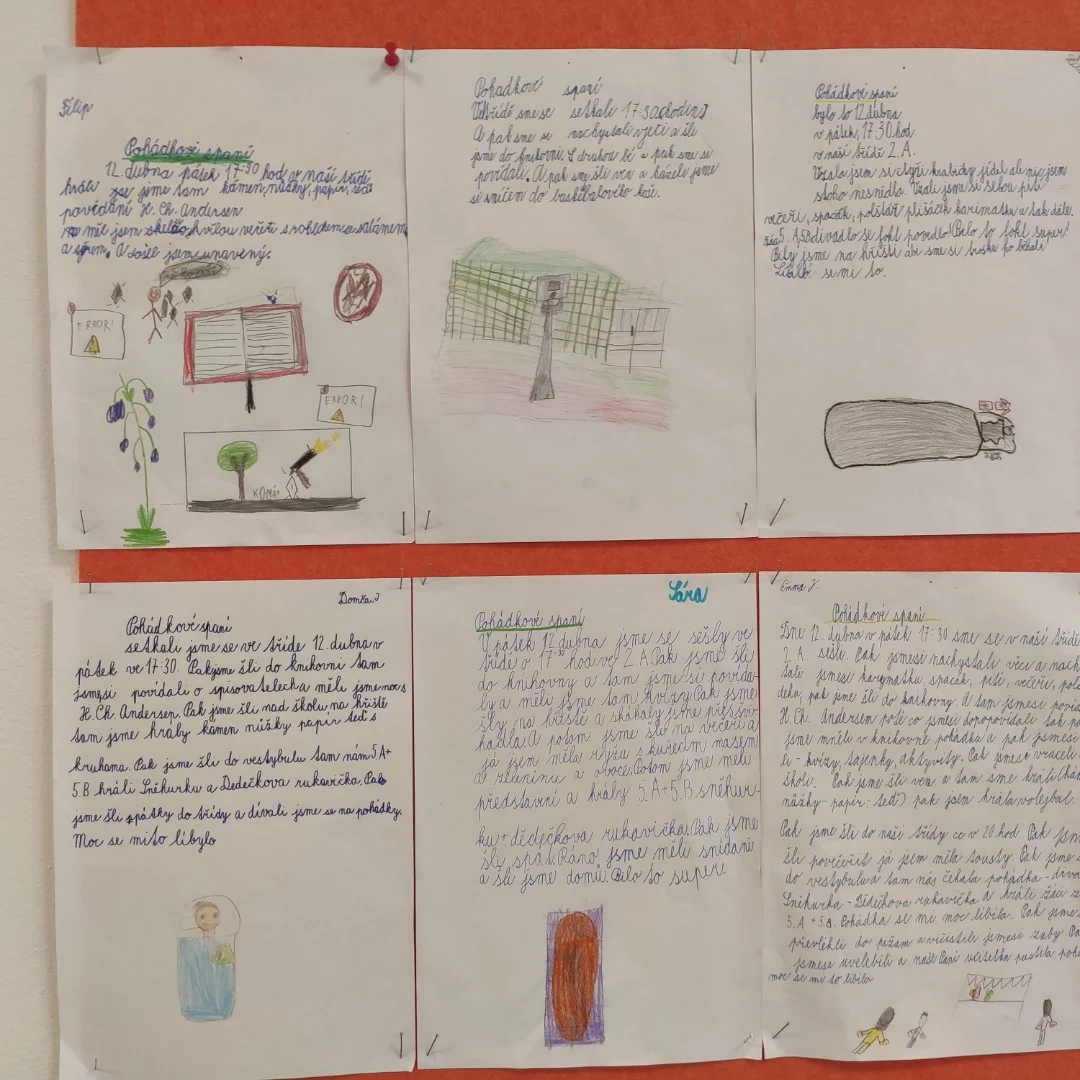 Filip
Pohádkové spaní
12. dubna pátek 17 30 hod. v naší třídě
hrála jsme tam kámen, nůžky, papír, teď
povídání H. Ch. Andersen
měl jsem večeři s salámem
a sýrem. A došel jsem unavený.
ERROR!
ERROR!
KONÍ
Pohadkové spaní
Vetřídě sme se setkali 17:30
A pak sme se nachystali vječi a šli
jsme do knihovni. S druhou bé a pak sme si
povídali. A pak sme šli ven a házeli jsme
si míčem do basketbalového koše.
Pohádkové spaní
bylo to 12 dubna
v pátek, 17:30 hod
v naší třídě 2. A.
Vzala jsem si čtyři krabičky jídel ale nic jsem
stoho nesnědla. Vzali jsme si sebou pití
večeři, spacák, polštář plišáček karimatka a tak dále.
5. A divadlo se fakt povedlo! Bylo to fakt super!
Bily jsme na hřišti abi sme si troske po běhali
Líbilo se mi to.
Domča. J
Pohádkové spaní
setkali jsme se ve třídě 12. dubna v
pátek ve 17:30. Pak jsme šli do knihovni tam
jsmysi povídali o spisovatelech a měli jsme noc s
H. Ch. Andersen. Pak jsme šli nad školu na hřiště
tam jsme hrály kámen nůžky papír teď s
kruhama. Pak jsme šli do vestybulu tam nám 5.A+
5.B hráli Sněhurku a Dedečkova rukavička. Pak
jsme šli spátky do třídy a dívali jsme se na pohádky.
Moc se mi to líbylo
Sára
Pohádkové spaní
V pátek 12. dubna jsme se sešly ve
třídě o 17 30 hod ve 2. A. Pak jsme šli
do knihovny a tam jsme si povída-
ly a měli jsme tam kvízy. Pak jsme
šly na hřiště a skákaly jsme přes švi-
hadla. A potom jsme šli na večeři a
já jsem měla rýžu s kuřecím masem
a zeleninu a ovoce. Potom jsme měli
představení a hrály 5. A + 5. B sněhur-
ku + dědečkova rukavička. Pak jsme
šli spat. Ráno jsme měli snídani
a šli jsme domů. Bilo to super.
Emma J.
Pohádkové spaní
Dne 12. dubna v pátek v 17:30 sme se v naší třídě
2. A. sešli. Pak jsmesi nachystali věci a nach
tali jsmesi karymatku, spacák, pití, večeři, pol
deku, pak jsme šli do knihovny. A tam jsmesi poví
H. Ch. Andersen poté co jsmesi dopovídali tak
jsme mněli v knihovně pohádku a pak jsmesi
li - kvízy, tajenky, aktyvity. Pak jsmesi vraceli
školi. Pak jsme šli ven a tam sme hráli (kám
nůžky - papír - teď) pak jsem hrála volejbal.
Pak jsme šli do naší třídy cc v 20 hod. Pak jsm
šli povečeřit já jsem měla tousty. Pak jsme
do vestybulu a tam nás čekala pohádka - díva
Sněhurka - Dědečkova rukavička a hráli žáci z
5. A + 5. B. Pohádka se mi moc líbila. Pak jsme
převlékli do pižam a vičistili jsmesi zuby. Pa
jsmese uvelebili a naše Paní učitelka pustila poh
moc se mi to líbilo